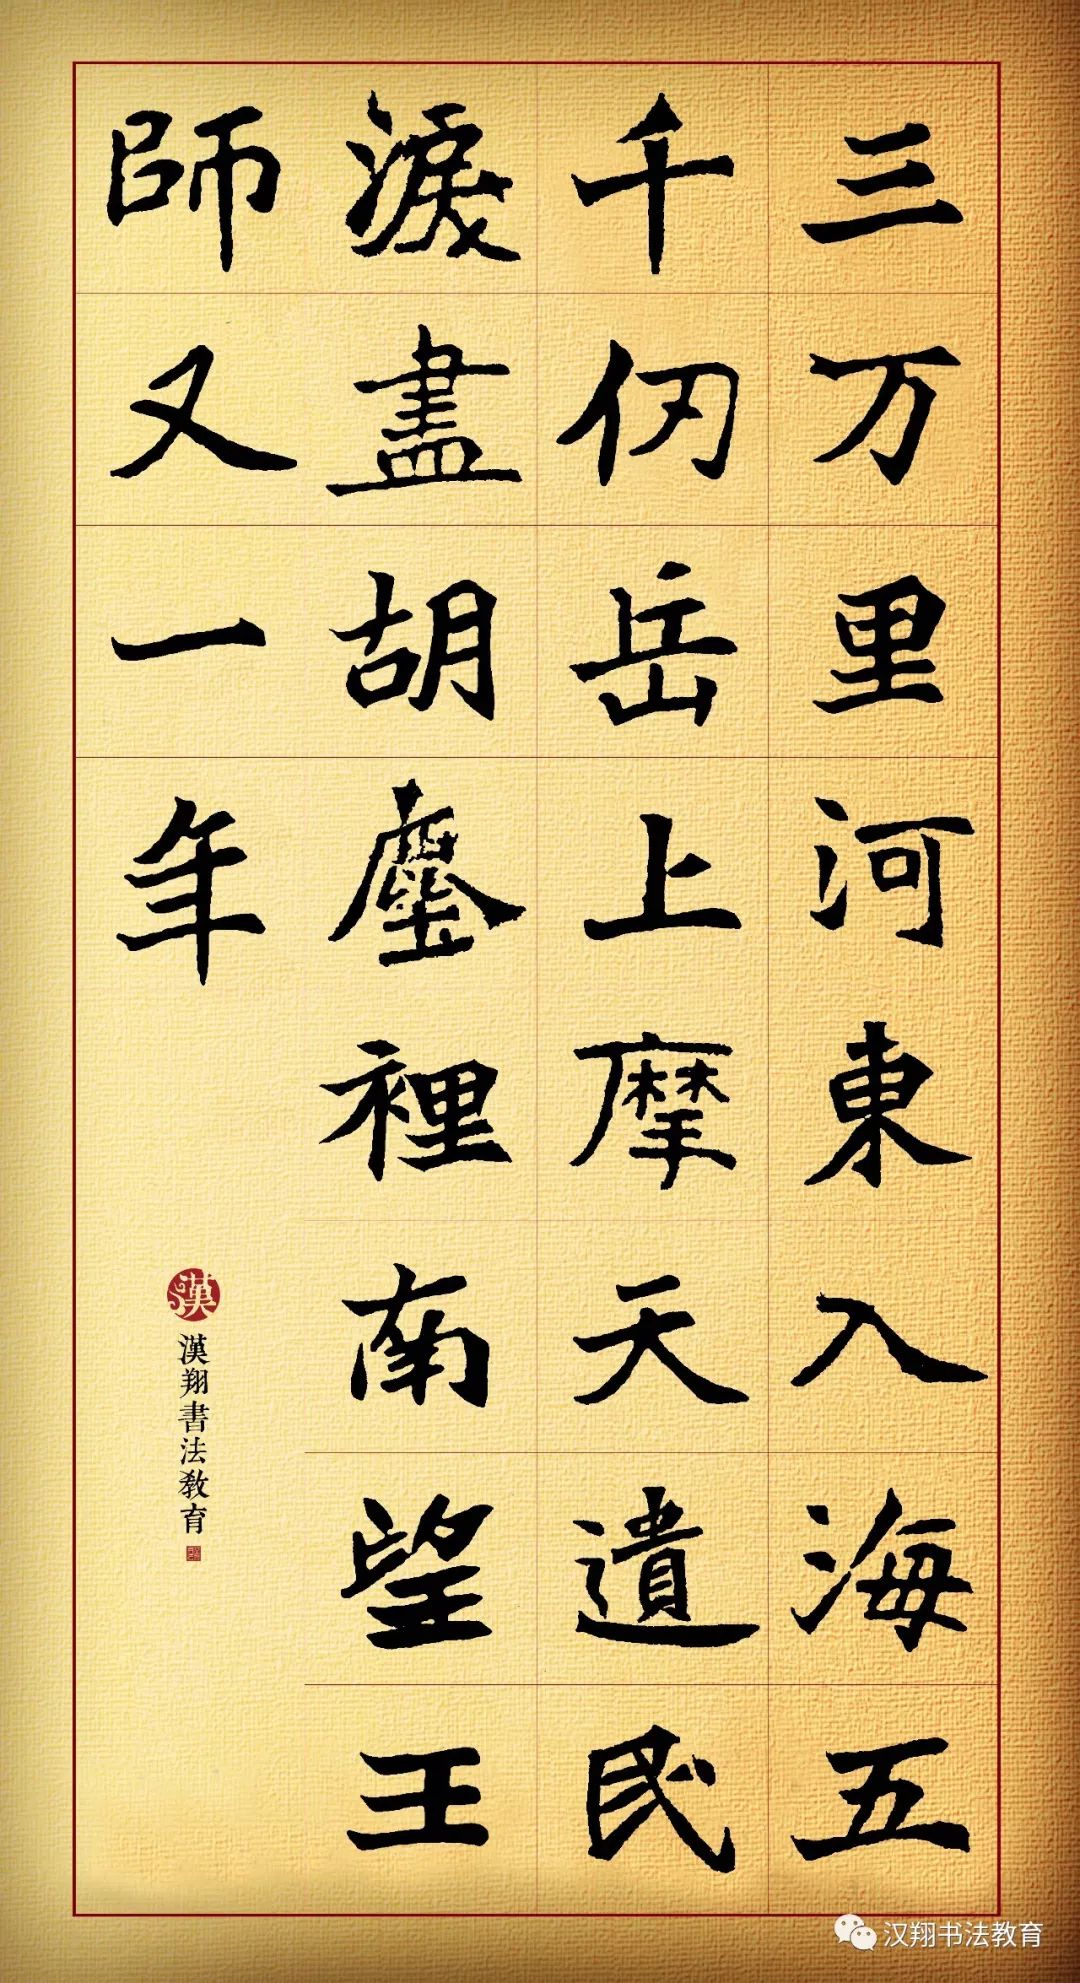 三万里河東入海五
千仞岳上摩天遺民
淚盡胡塵裡南望王
師又一年
漢
漢翔書法教育
汉翔书法教育